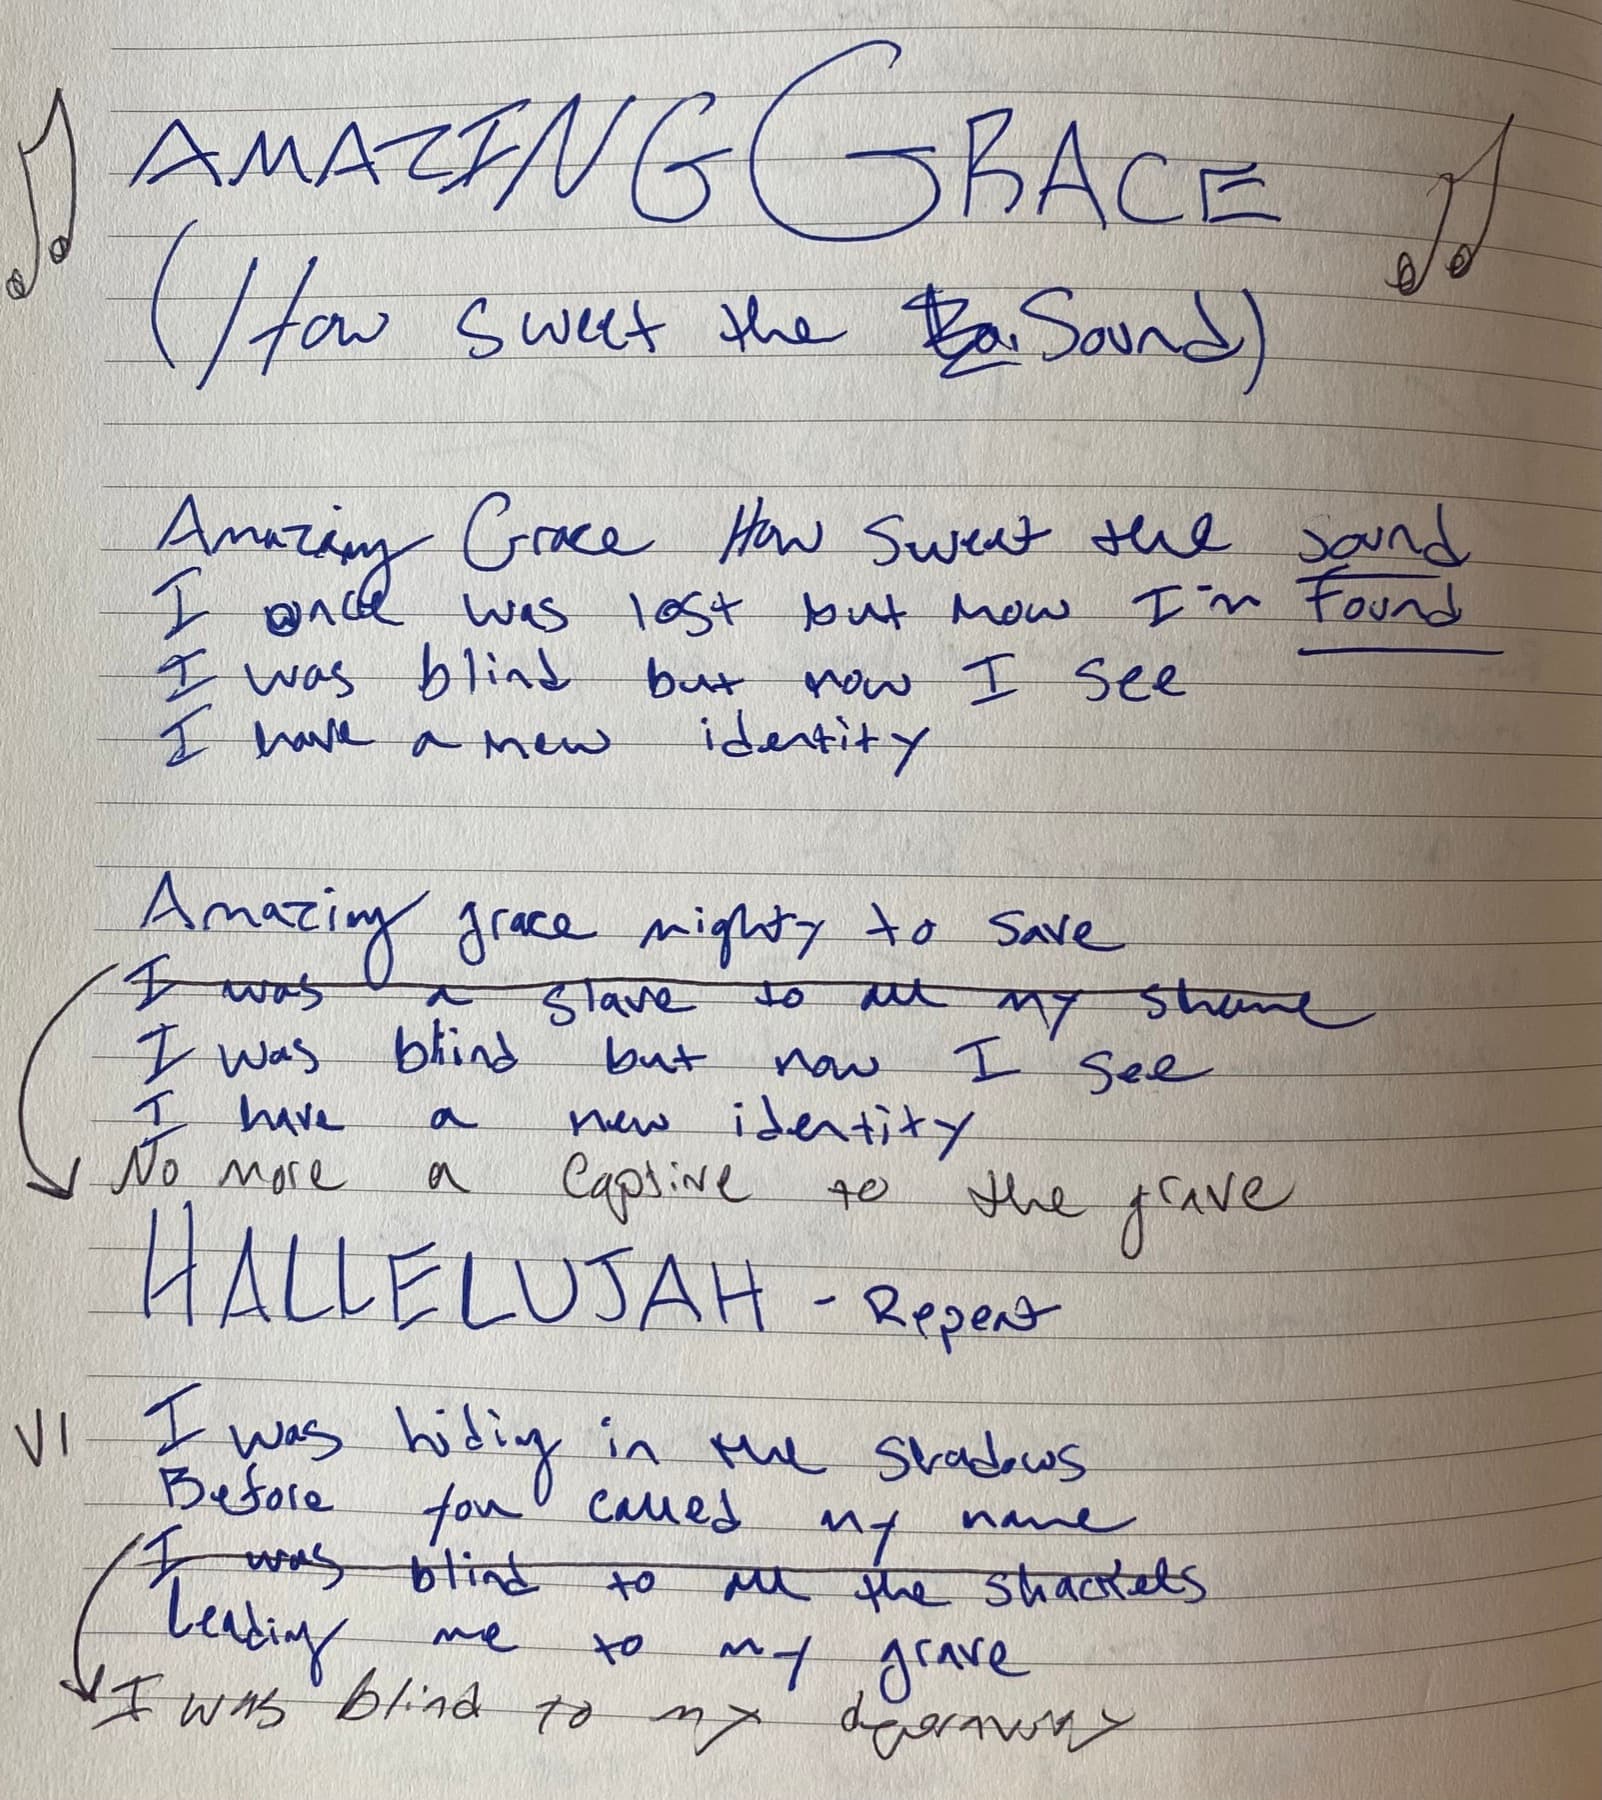 AMAZING GRACE
(How sweet the Sound)
Amazing Grace How sweet the sound
I once was lost but now I'm found
I was blind but now I see
I have a new identity
Amazing grace mighty to save
I was a slave to all my shame
I was blind but now I see
I have a new identity
No more a captive to the grave
HALLELUJAH - Repeat
V1 I was hiding in the shadows
Before you called my name
I was blind to all the shackels
Leading me to my grave
I was blind to my